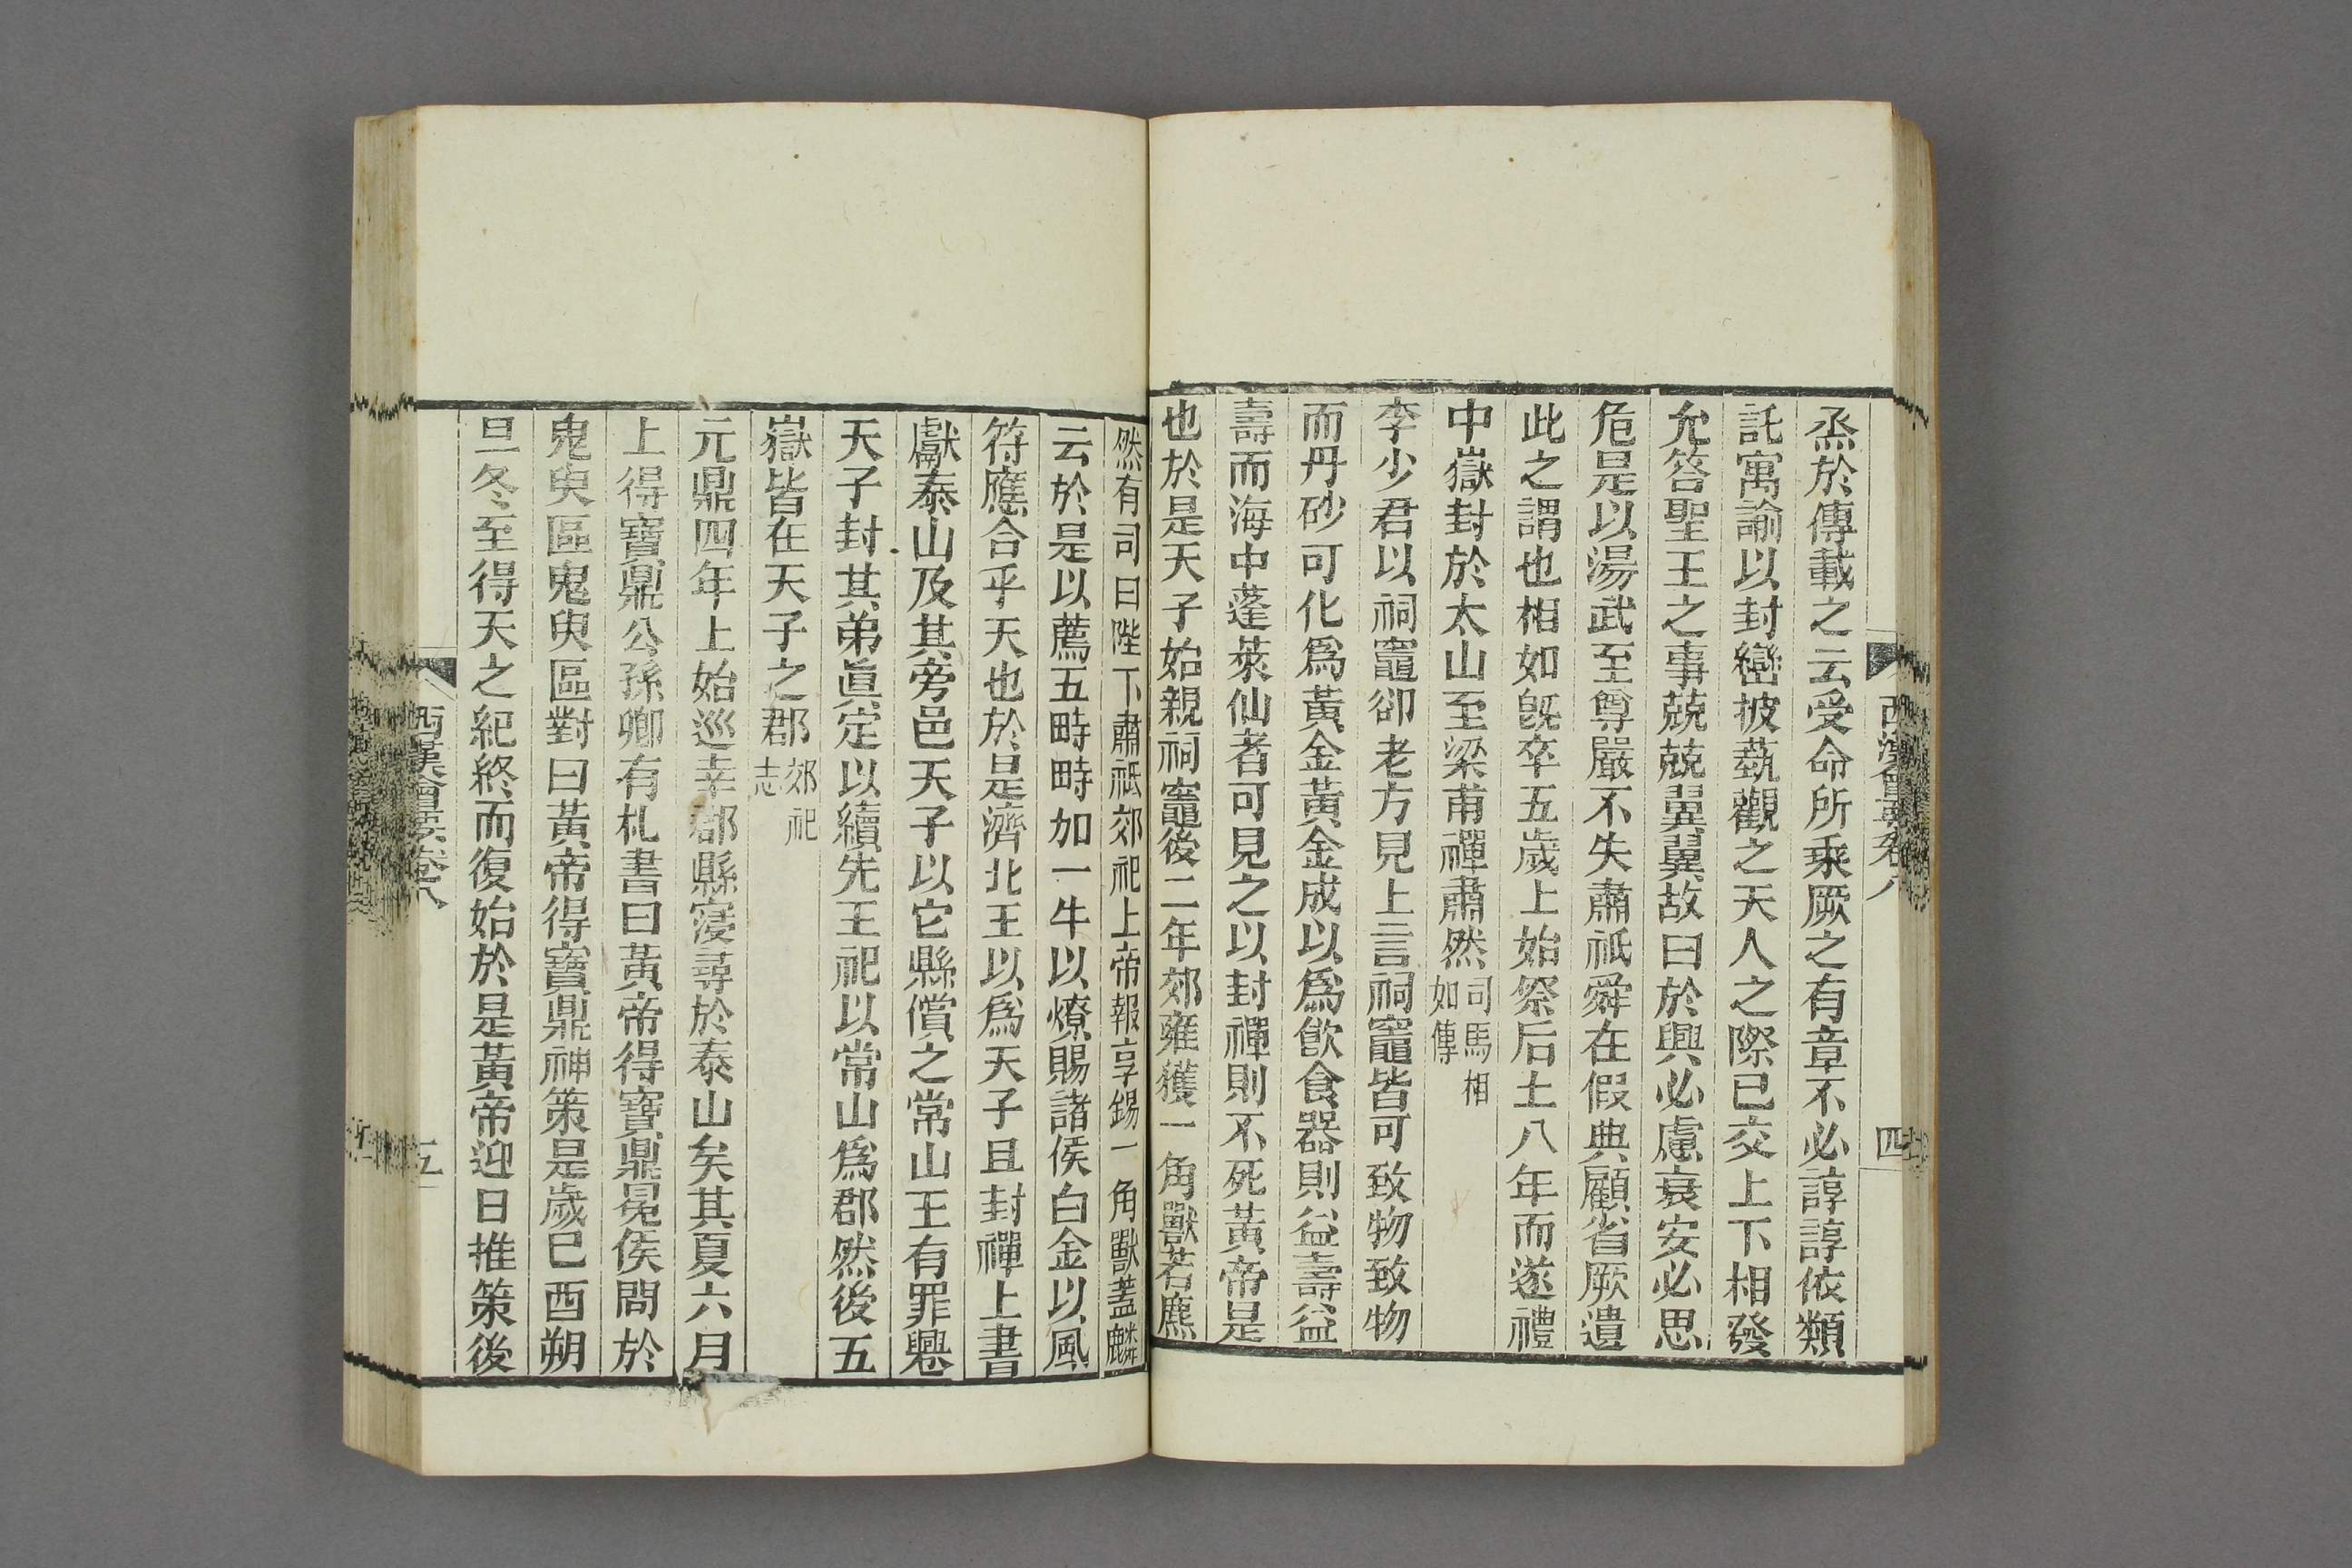 西漢會要卷八
四
烝於傳載之云受命所乘厥之有章不必諄諄依類
託寓諭以封巒披蓺觀之天人之際已交上下相發
允答聖王之事兢兢翼翼故曰於興必慮衰安必思
危是以湯武至尊嚴不失肅祗舜在假典顧省厥遺
此之謂也相如旣卒五歲上始祭后土八年而遂禮
中嶽封於太山至梁甫禪肅然司馬相如傳
李少君以祠竈卻老方見上言祠竈皆可致物致物
而丹砂可化爲黃金黃金成以爲飮食器則益壽益
壽而海中蓬萊仙者可見之以封禪則不死黃帝是
也於是天子始親祠竈後二年郊雍獲一角獸若麃
然有司曰陛下肅祗郊祀上帝報享錫一角獸蓋麟
云於是以薦五畤畤加一牛以燎賜諸侯白金以風
符應合乎天也於是濟北王以爲天子且封禪上書
獻泰山及其旁邑天子以它縣償之常山王有罪䙴
天子封其弟眞定以續先王祀以常山爲郡然後五
嶽皆在天子之郡郊祀志
元鼎四年上始巡幸郡縣寖尋於泰山矣其夏六月
上得寶鼎公孫卿有札書曰黃帝得寶鼎冕侯問於
鬼臾區鬼臾區對曰黃帝得寶鼎神策是歲己酉朔
旦冬至得天之紀終而復始於是黃帝迎日推策後
西漢會要卷八
五